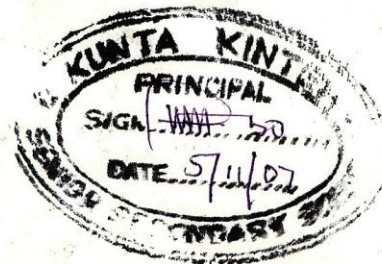 KUNTA KINTEH
PRINCIPAL
SIGN
DATE 5/11/07
SENIOR SECONDARY